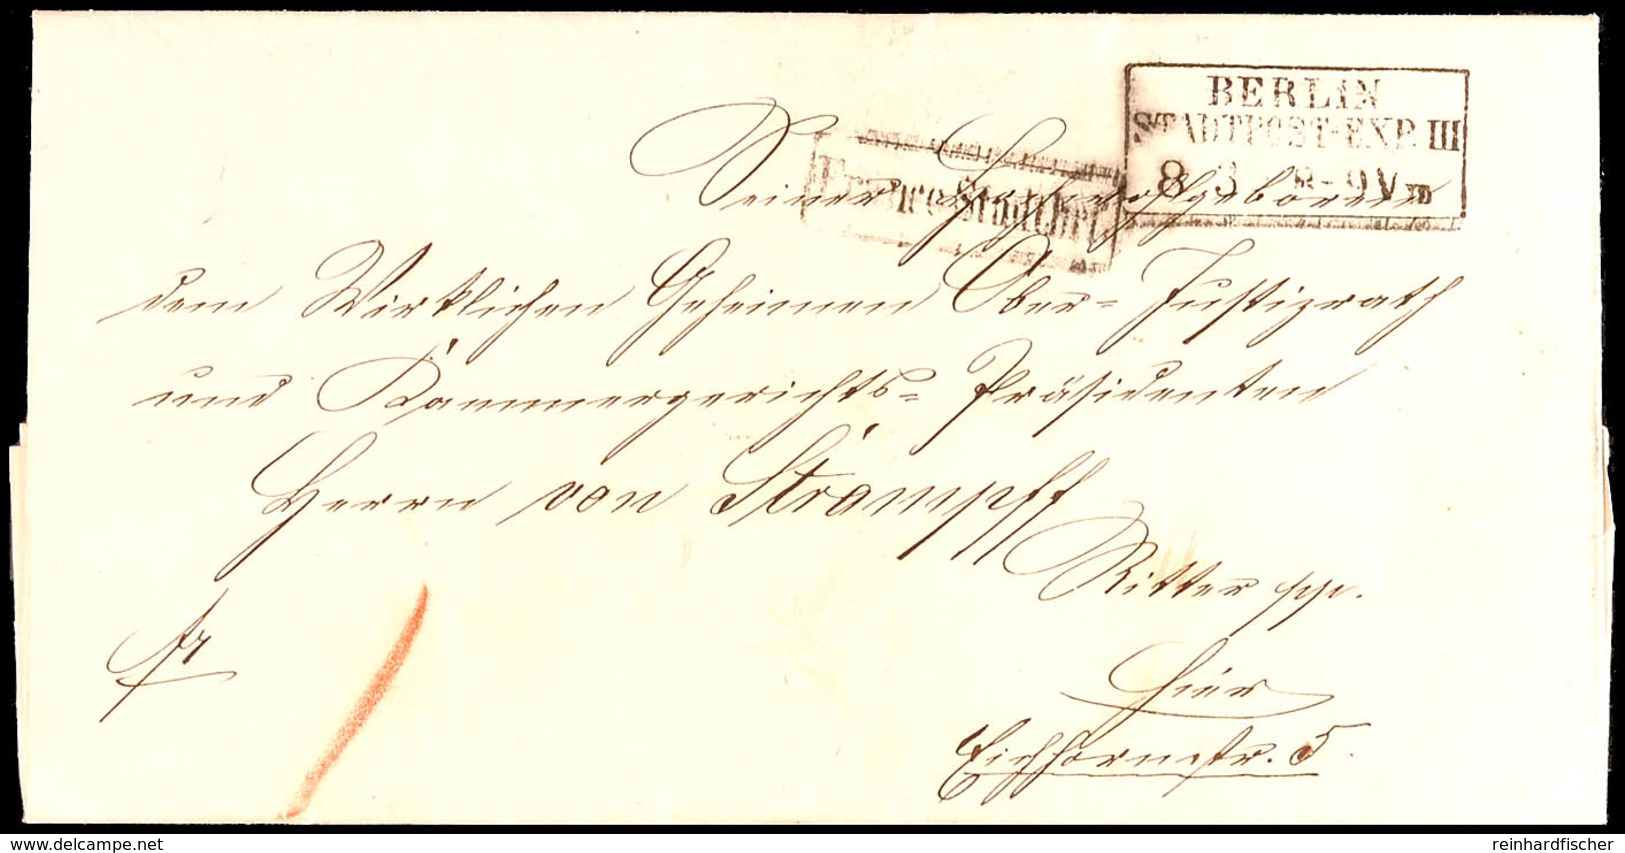 BERLIN
STADTPOST-EXP. III
8 3 8-9 Vm
Franco Stadtbr.
Seiner Hochwohlgeboren
dem Wirklichen Geheimen Ober-Justizrath
und Kammergerichts-Präsidenten
Herrn von Strampff
Ritter pp.
fr
hier
Eichhornstr. 5.
www.delcampe.net
reinhardfischer